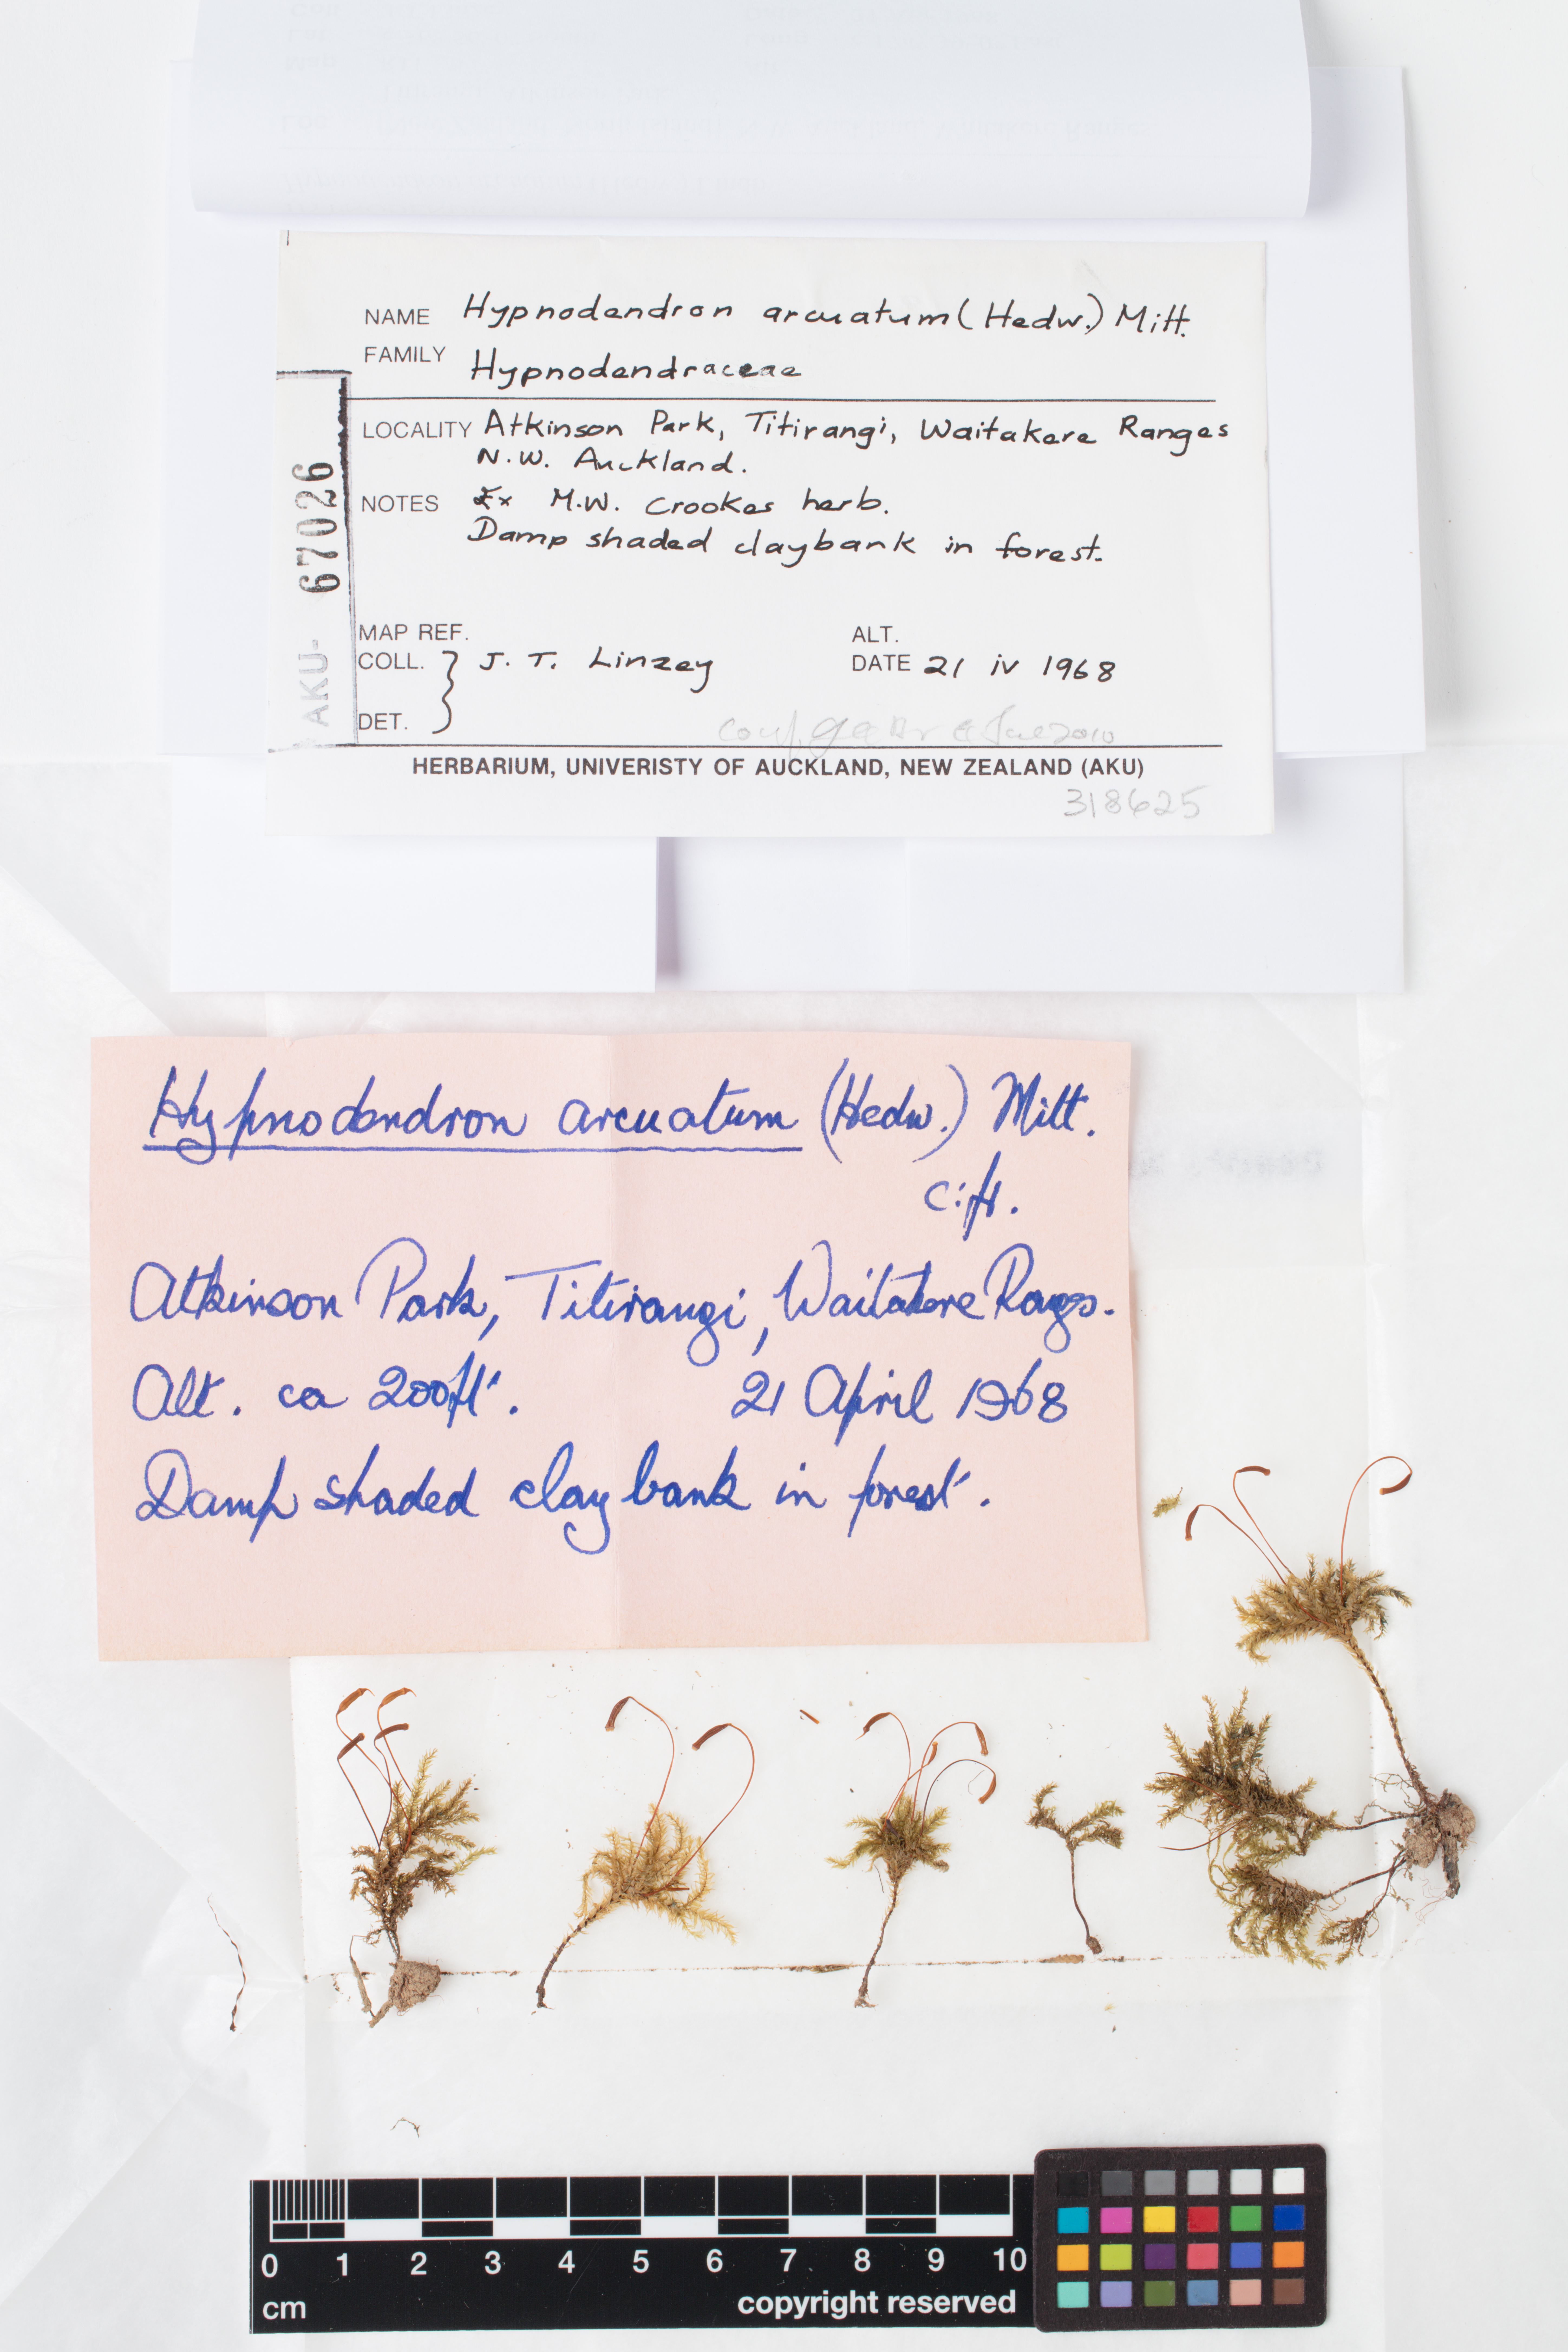 NAME Hypnodendron arcuatum (Hedw.) Mitt.
FAMILY Hypnodendraceae
LOCALITY Atkinson Park, Titirangi, Waitakere Ranges
N.W. Auckland.
NOTES Ex M.W. Crookes herb.
Damp shaded claybank in forest.
AKU- 67026
MAP REF. ALT.
COLL. J. T. Linzey DATE 21 iv 1968
DET.
conf. 2010
HERBARIUM, UNIVERISTY OF AUCKLAND, NEW ZEALAND (AKU)
318625
Hypnodendron arcuatum (Hedw.) Mitt.
c.fr.
Atkinson Park, Titirangi, Waitakere Rages.
Alt. ca 200ft. 21 April 1968
Damp shaded clay bank in forest.
0 1 2 3 4 5 6 7 8 9 10
cm copyright reserved